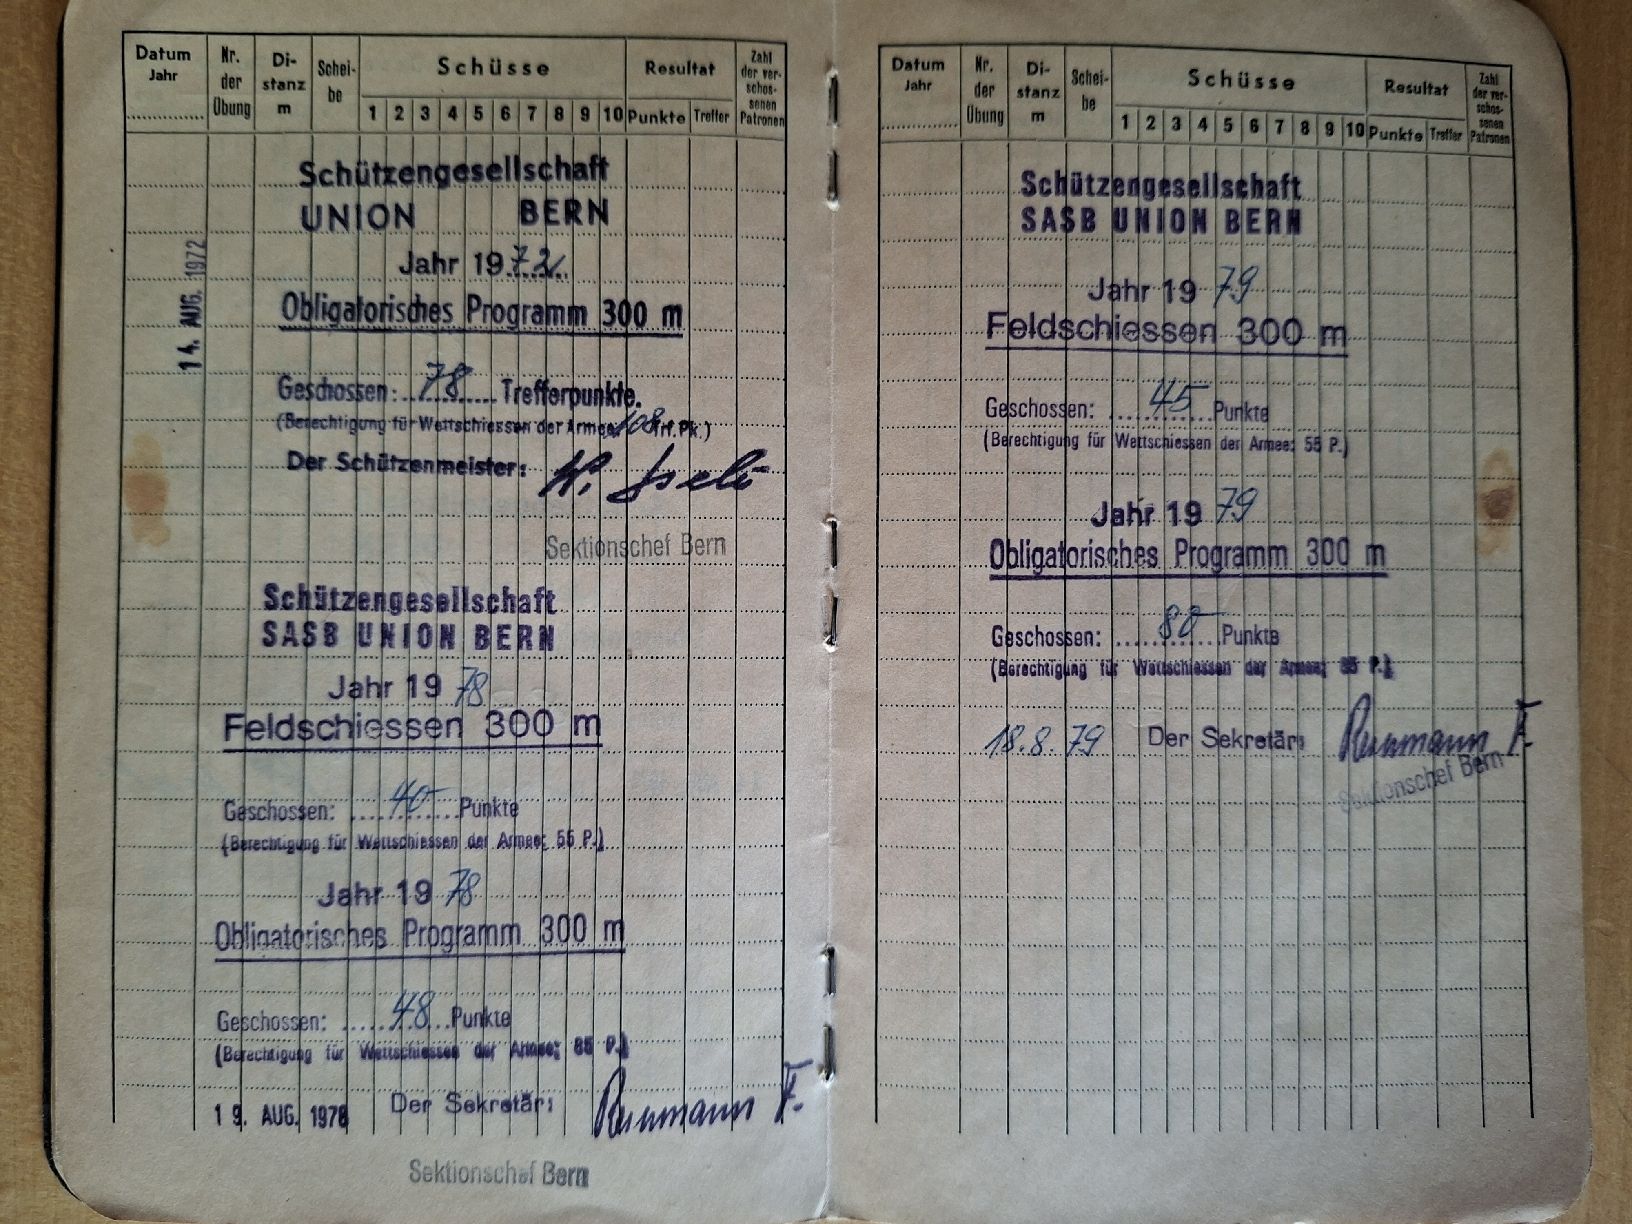 Datum
Jahr
Nr. der Übung
Di-stanz m
Schei-be
Schüsse
1 2 3 4 5 6 7 8 9 10
Resultat
Punkte Treffer
Zahl der ver-schos-senen Patronen
Schützengesellschaft
UNION BERN
Jahr 1972
14. AUG. 1972
Obligatorisches Programm 300 m
Geschossen: 78 Trefferpunkte.
(Berechtigung für Wettschiessen der Armee 108 Trf. Pk.)
Der Schützenmeister:
Sektionschef Bern
Schützengesellschaft
SASB UNION BERN
Jahr 1978
Feldschiessen 300 m
Geschossen: 40 Punkte
(Berechtigung für Wettschiessen der Armee: 55 P.)
Jahr 1978
Obligatorisches Programm 300 m
Geschossen: 48 Punkte
(Berechtigung für Wettschiessen der Armee: 85 P.)
19. AUG. 1978 Der Sekretär:
Sektionschef Bern
Datum
Jahr
Nr. der Übung
Di-stanz m
Schei-be
Schüsse
1 2 3 4 5 6 7 8 9 10
Resultat
Punkte Treffer
Zahl der ver-schos-senen Patronen
Schützengesellschaft
SASB UNION BERN
Jahr 1979
Feldschiessen 300 m
Geschossen: 45 Punkte
(Berechtigung für Wettschiessen der Armee: 55 P.)
Jahr 1979
Obligatorisches Programm 300 m
Geschossen: Punkte
(Berechtigung für Wettschiessen der Armee: 85 P.)
18.8.79 Der Sekretär:
Sektionschef Bern